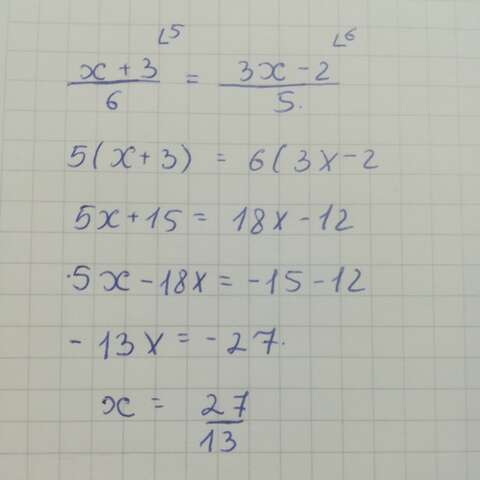 ∟5 ∟6
x + 3 / 6 = 3x - 2 / 5.
5(x+3) = 6(3x-2
5x+15 = 18x-12
·5x-18x = -15-12
-13x = -27.
x = 27/13